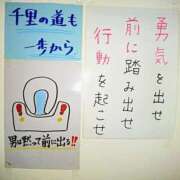 千里の道も
一歩から
男は黙って前に出る!!
勇気を出せ
前に踏み出せ
行動を起こせ